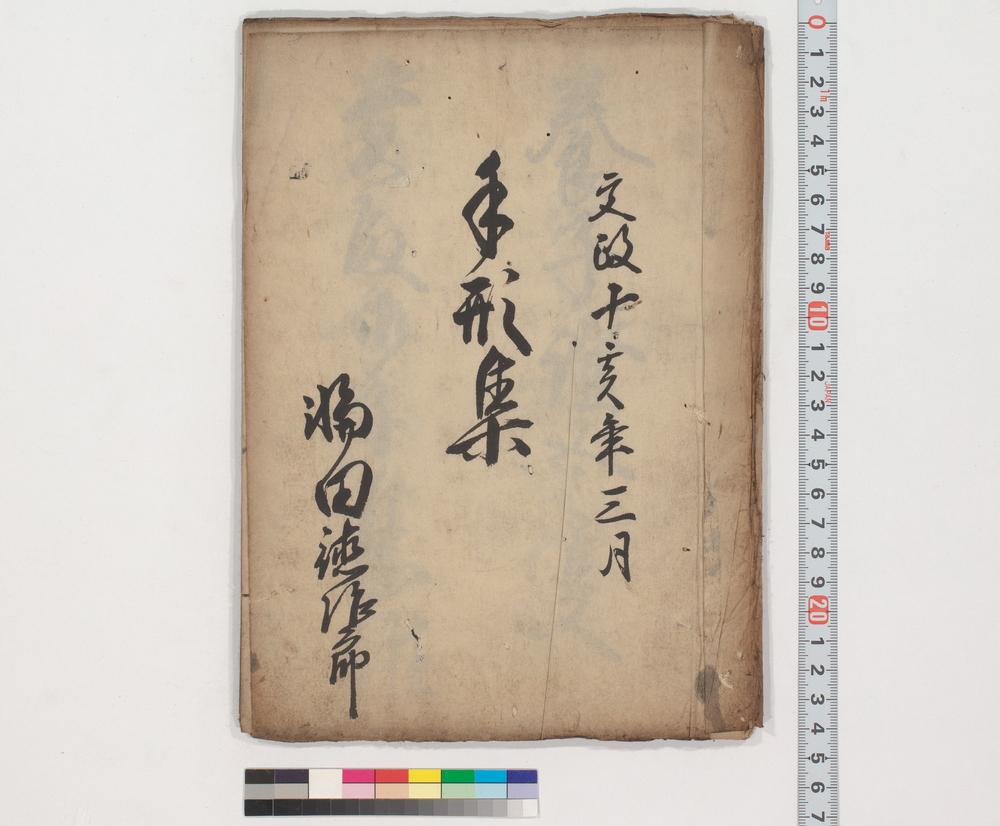 文政十亥年三月
手形集
田徳治郎
0 1 2 3 4 5 6 7 8 9 10 1 2 3 4 5 6 7 8 9 20 1 2 3 4 5 6 7
1m
JAPAN